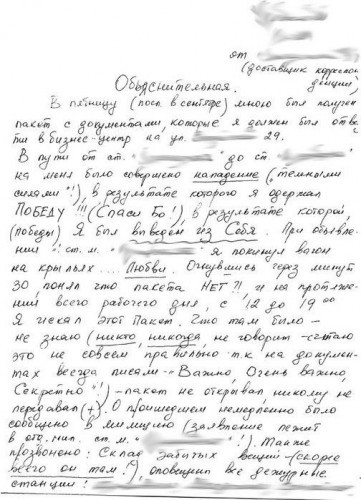 от
(доставщик корреспон
денции)
Объяснительная.
В пятницу (посл. в сентябре) мною был получен
пакет с документами, которые я должен был отве
ти в бизнес-центр на ул. 29.
В пути от ст. " " до ст. "
на меня было совершено нападение ("темными
силами"!), в результате которого я одержал
ПОБЕДУ!!! (Спаси Бо!), в результате которой,
(победы) Я был выведен из Себя. При объявле-
нии ": ст. м. " " я покинул вагон
на крыльях... Любви. Очнувшись через минут
30 понял что пакета НЕТ?! и на протяже-
нии всего рабочего дня, с 12 до 19 00
Я искал этот Пакет. Что там было –
не знаю (никто, никогда не говорит - считаю
это не совсем правильно т.к на докумен-
тах всегда писали - "Важно, Очень важно,
Секретно"!) - пакет не открывал никому не
передавал (+). О происшедшем немедленно было
сообщено в милицию (заявление лежит
в отд. мил. ст. м. " "!). Также
прозвонено: Склад забытых вещей - (скорее
всего он там!), оповещены все дежурные
станции!